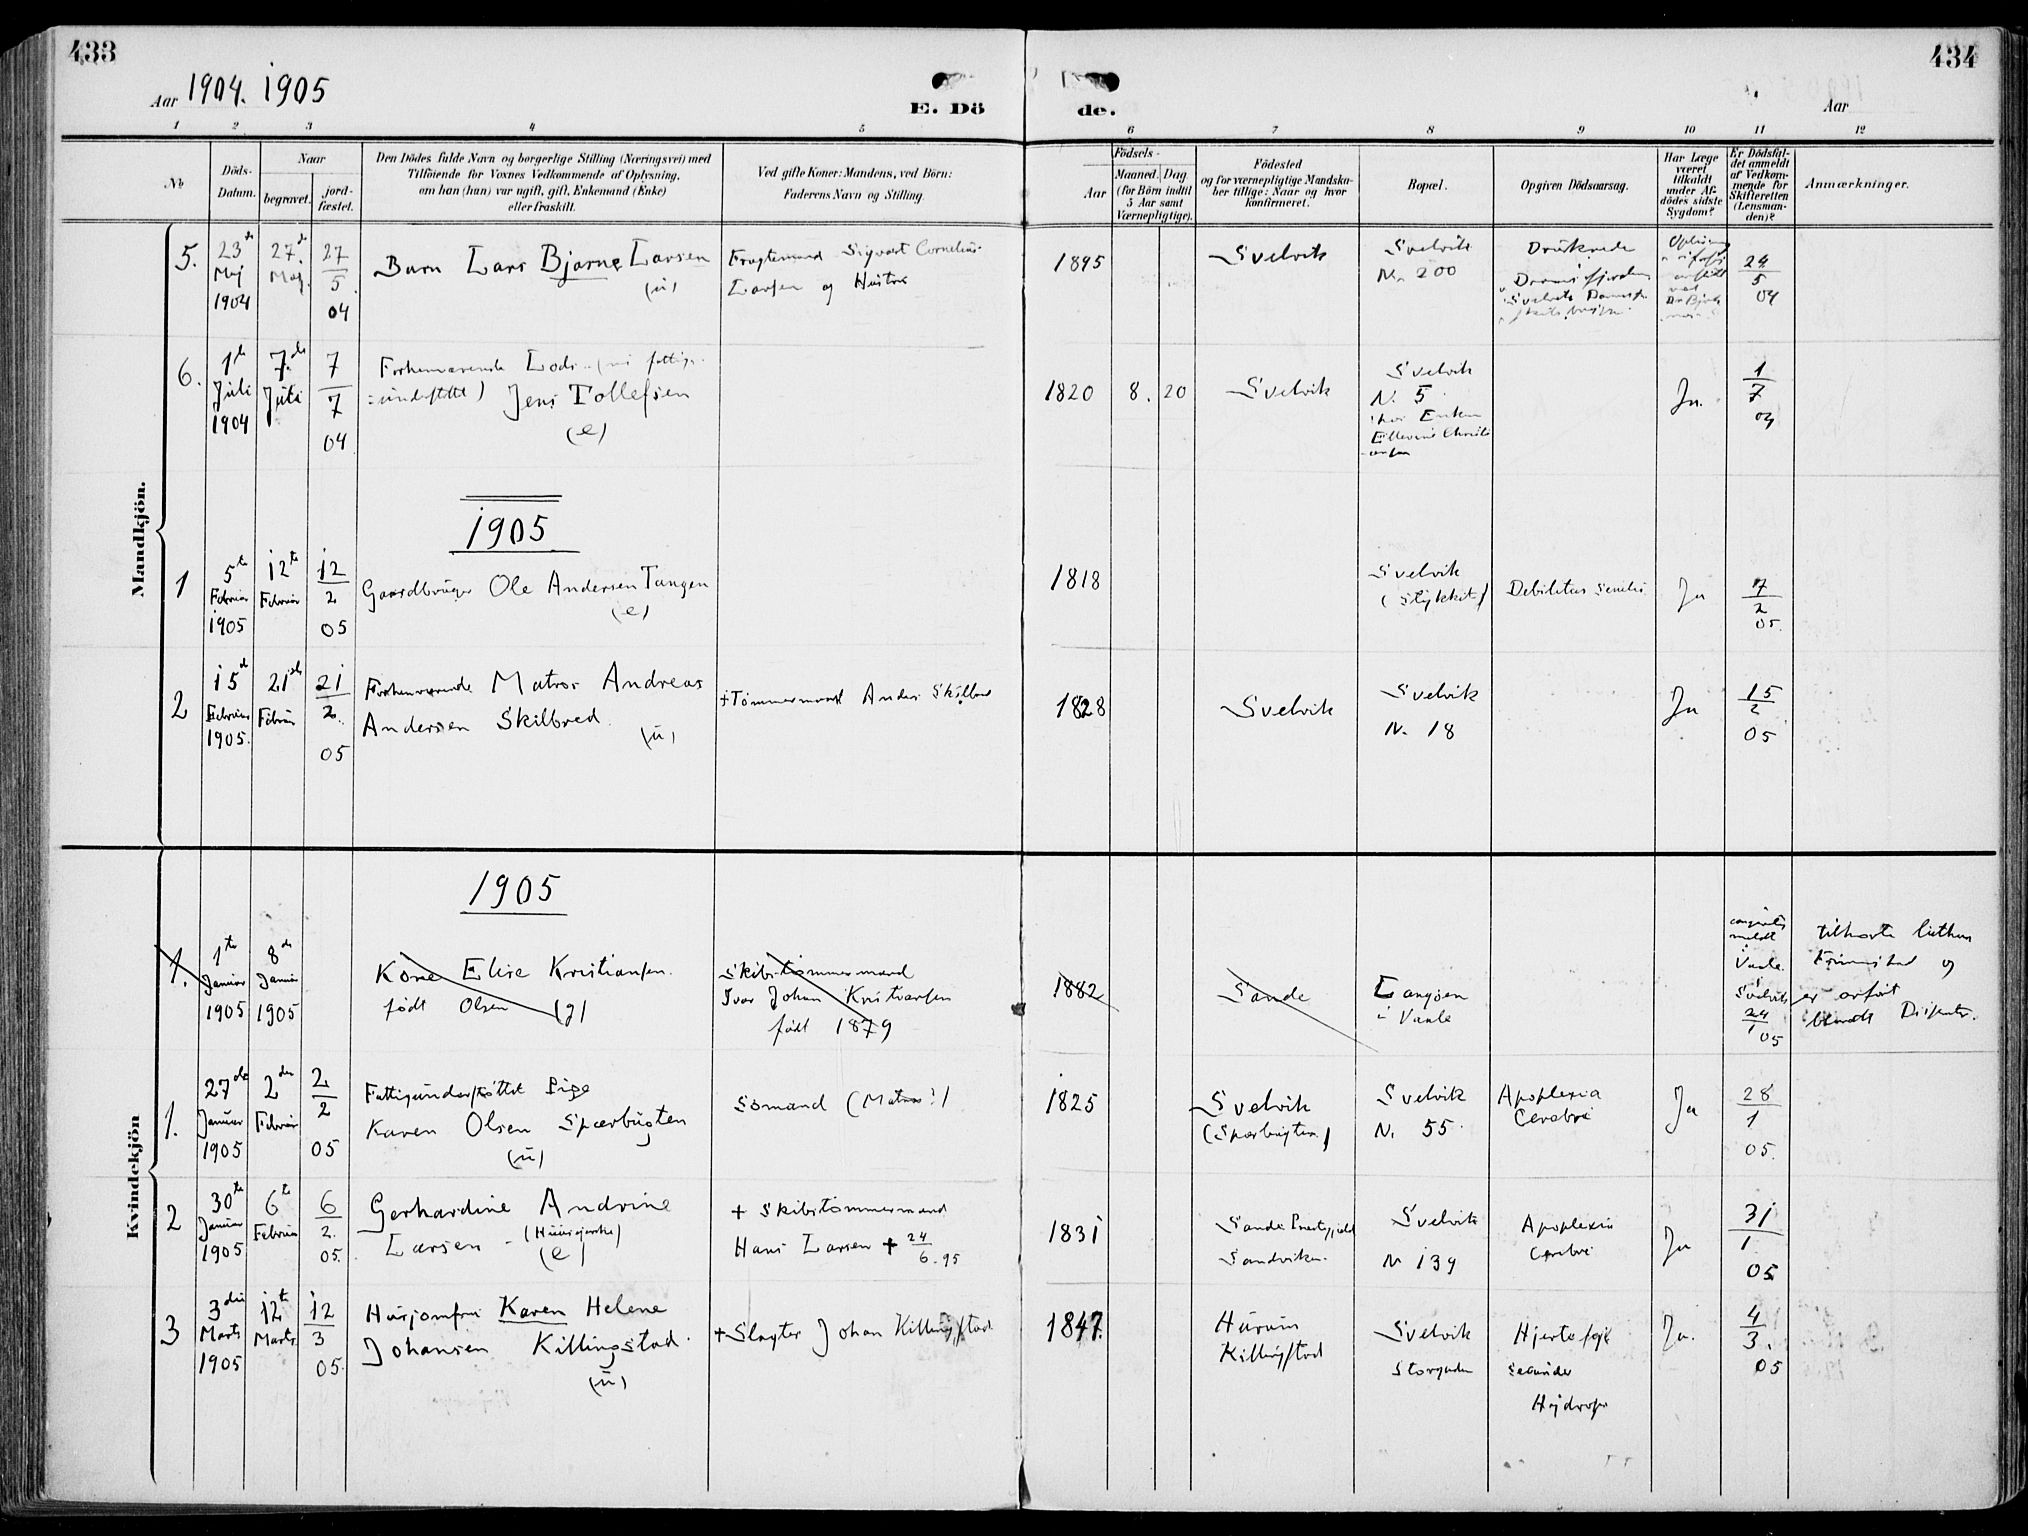 433
434
Aar 1904. 1905
E. Dö
de.
Aar
1 2 3 4 5
6 7 8 9 10 11 12
No
Döds-
Datum.
Naar
begravet.
jord-
fæstet.
Den Dödes fulde Navn og borgerlige Stilling (Næringsvei) med
Tilföiende for Voxnes Vedkommende af Oplysning,
om han (hun) var ugift, gift, Enkemand (Enke)
eller fraskilt.
Ved gifte Koner: Mandens, ved Börn:
Faderens Navn og Stilling.
Födsels-
Aar
Maaned. Dag
(for Börn indtil
5 Aar samt
Værnepligtige).
Födested
og for værnepligtige Mandska-
ber tillige: Naar og hvor
konfirmeret.
Bopæl.
Opgiven Dödsaarsag.
Har Læge
været
tilkaldt
under Af-
dödes sidste
Sygdom?
Er Dödsfal-
det anmeldt
af Vedkom-
mende for
Skifteretten
(Lensman-
den)?
Anmærkninger.
Mandkjön.
5.
23de
Maj
1904
27de
Maj
27
5
04
Barn Lars Bjarne Larsen
(u)
Fragtemand Sigvart Cornelius
Larsen og Hustru
1895
Svelvik
Svelvik
N. 200
Druknede
i Dramsfjorden
24
5
04
6.
1ste
Juli
1904
7de
Juli
7
7
04
Forhenværende Lods (nu fattig-
understøttet) Jens Tollefsen
(e)
1820
8. 20
Svelvik
Svelvik
N. 5
hos Enken
Ellevine Christi
ansen
Ja.
1
7
04
1905
1
5te
Februar
1905
12te
Februar
12
2
05
Gaardbruger Ole Andersen Tangen
(e)
1818
Svelvik
Debilitas Senilis
Ja
7
2
05.
2
15de
Februar
1905.
21de
Februar
21
2.
05
Forhenværende Matros Andreas
Andersen Skilbred
(u)
+Tømmermand Anders Skilbred
1828
Svelvik
Svelvik
N. 18
Ja
15
2
05
Kvindekjön
1905
1.
1ste
Januar
1905
8de
Januar
1905
Kone Elise Kristiansen.
født Olsen (g)
Skibstømmermand
Ivar Johan Kristiansen
født 1879
1882
Sande
Langøen
i Vaale
meldt
i
Vaale.
Svelvik
24
1
05
tilhørte luthersk
Frimenighed og
er anført
blandt Dissenter.
1.
27de
Januar
1905
2den
Februar
2
2
05
Fattigunderstøttet Pige
Karen Olsen Spærbugten
(u)
Sømand (Matros?)
1825
Svelvik
(Spærbugten)
Svelvik
N. 55
Apoplexia
Cerebri
Ja
28
1
05.
2
30te
Januar
1905
6te
Februar
6
2.
05.
Gerhardine Andrine
Larsen
(e)
+ Skibstømmermand
Hans Larsen + 24
6.95
1831
Sande Prestegjeld
Sandviken.
Svelvik
N 139
Apoplexia
Cerebri
Ja
31
1
05
3
3die
Marts
1905
12te
Marts
12
3
05.
Husjomfru Karen Helene
Johansen Killingstad.
(u)
+Slagter Johan Killingstad
1847.
Hurum
Killingstad
Svelvik
Storgaden
Hjertefejl
secundær
Hydrops
Ja.
4
3.
05